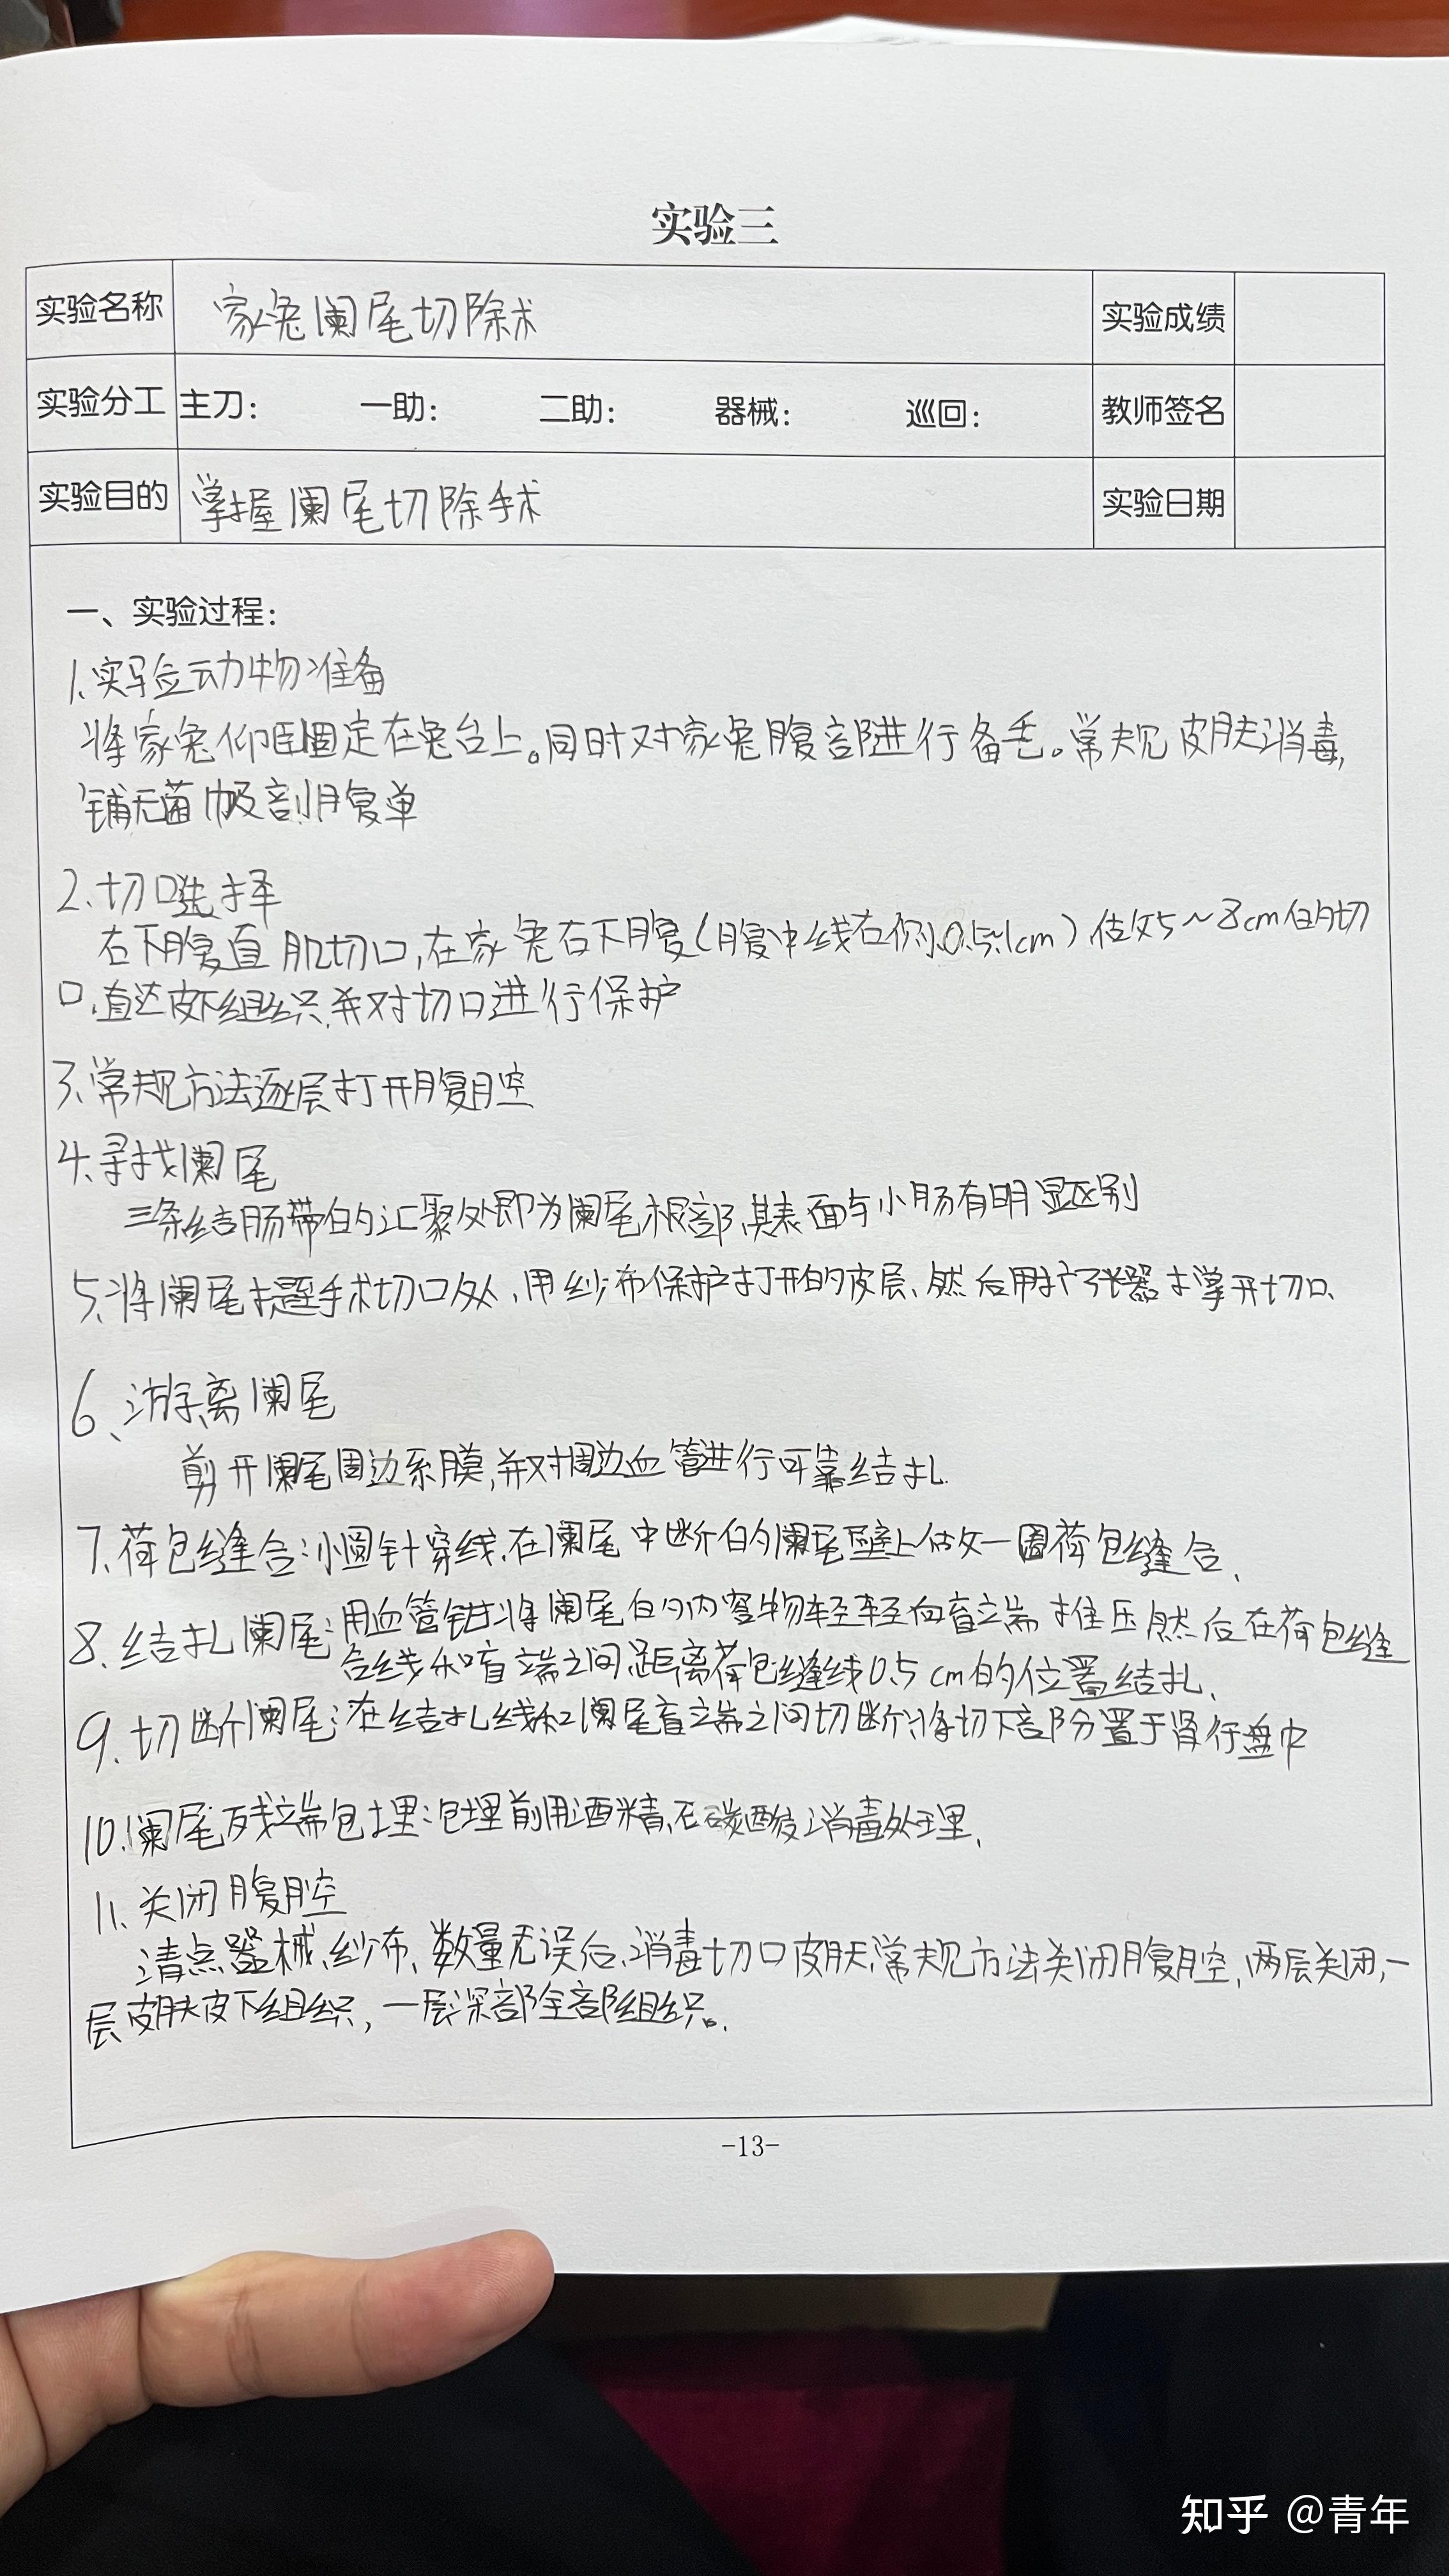 实验三
实验名称 家兔阑尾切除术 实验成绩
实验分工 主刀： 一助： 二助： 器械： 巡回： 教师签名
实验目的 掌握阑尾切除手术 实验日期
一、实验过程：
1.实验动物准备
将家兔仰卧固定在兔台上。同时对家兔腹部进行备毛。常规皮肤消毒，
铺无菌巾及剖腹单
2.切口选择
右下腹直肌切口，在家兔右下腹（腹中线右侧0.5~1cm）做5～8cm的切
口，直达皮下组织，并对切口进行保护
3.常规方法逐层打开腹腔
4.寻找阑尾
三条结肠带的汇聚处即为阑尾根部，其表面与小肠有明显区别
5.将阑尾提至手术切口处，用纱布保护打开的皮层、然后用扩张器撑开切口、
6、游离阑尾
剪开阑尾周边系膜，并对周边血管进行可靠结扎.
7.荷包缝合：小圆针穿线，在阑尾中断的阑尾壁上做一圈荷包缝合、
8.结扎阑尾：用血管钳将阑尾的内容物轻轻向盲端推压然后在荷包缝
合线和盲端之间，距离荷包缝线0.5cm的位置结扎、
9.切断阑尾：在结扎线和阑尾盲端之间切断，将切下部分置于肾行盘中
10.阑尾残端包埋：包埋前用酒精、石碳酸消毒处理、
11、关闭腹腔
清点器械、纱布、数量无误后、消毒切口皮肤，常规方法关闭腹腔，两层关闭，一
层皮肤皮下组织，一层深部全部组织。
-13-
知乎 @青年